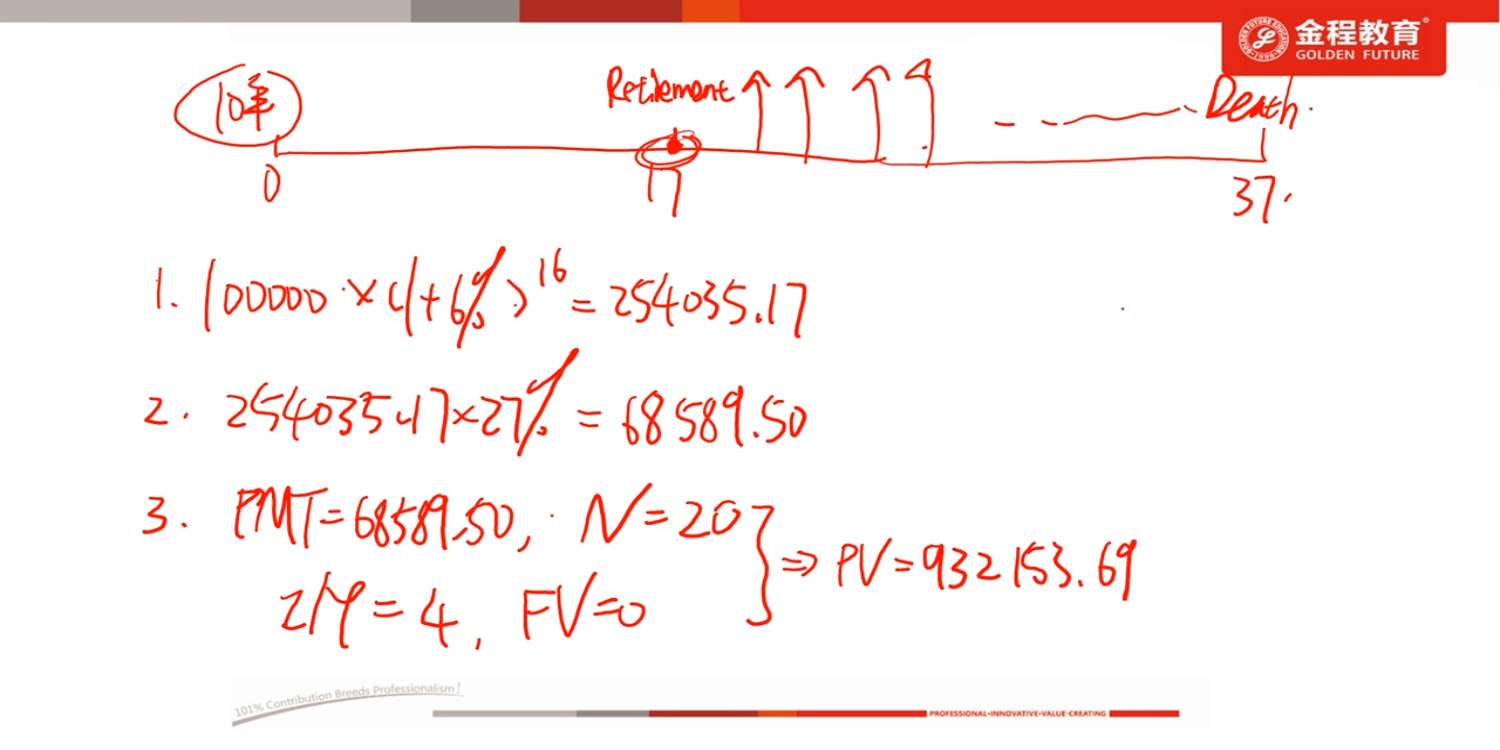 金程教育®
GOLDEN FUTURE
10年
Retirement
Death.
0
17
37.
1. 100000 × (1+6%)^16 = 254035.17
2. 254035.17×27% = 68589.50
3. PMT=68589.50, N=20
I/Y=4, FV=0
⇒ PV=932153.69
101% Contribution Breeds Professionalism!
PROFESSIONAL•INNOVATIVE•VALUE-CREATING